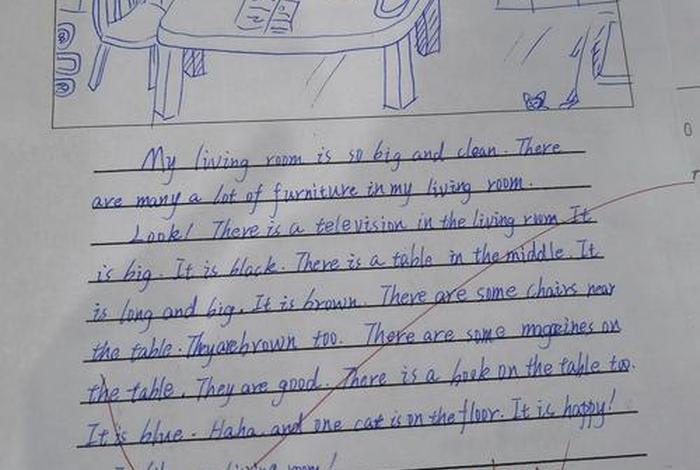 My living room is so big and clean. There
are many a lot of furniture in my living room.
Look! There is a television in the living room. It
is big. It is black. There is a table in the middle. It
is long and big. It is brown. There are some chairs near
the table. They are brown too. There are some magazines on
the table. They are good. There is a book on the table too.
It is blue. Haha. and one cat is on the floor. It is happy!
living room!